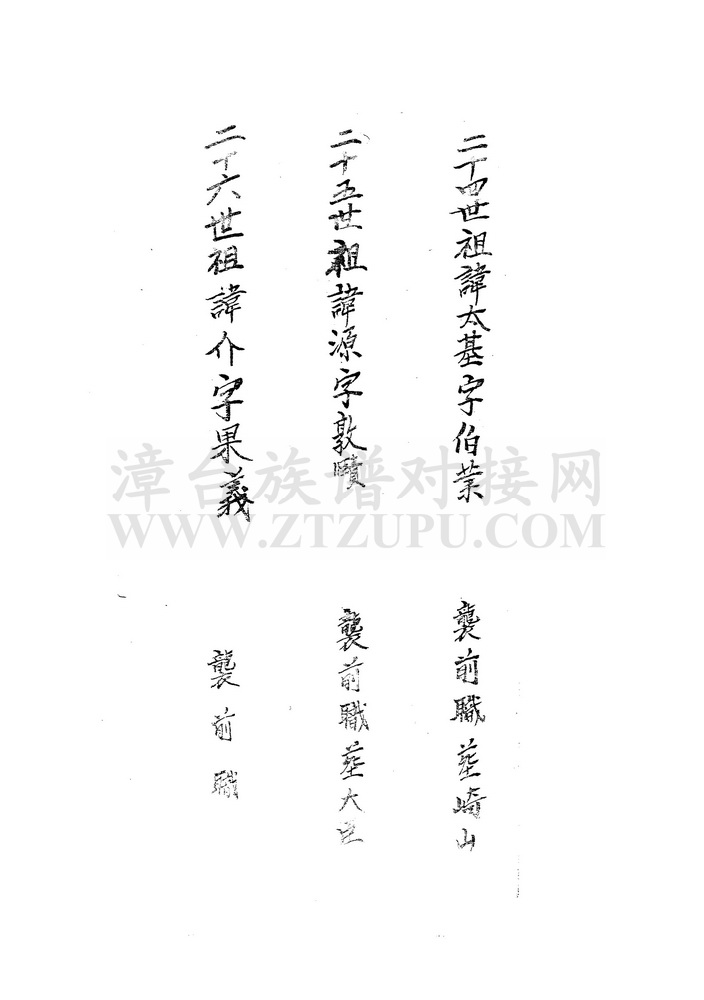 二十四世祖諱太基字伯業
襲前職塟崎山
二十五世祖諱源字敦賾
襲前職塟大
二十六世祖諱介字果義
襲前職
漳台族谱对接网
WWW.ZTZUPU.COM